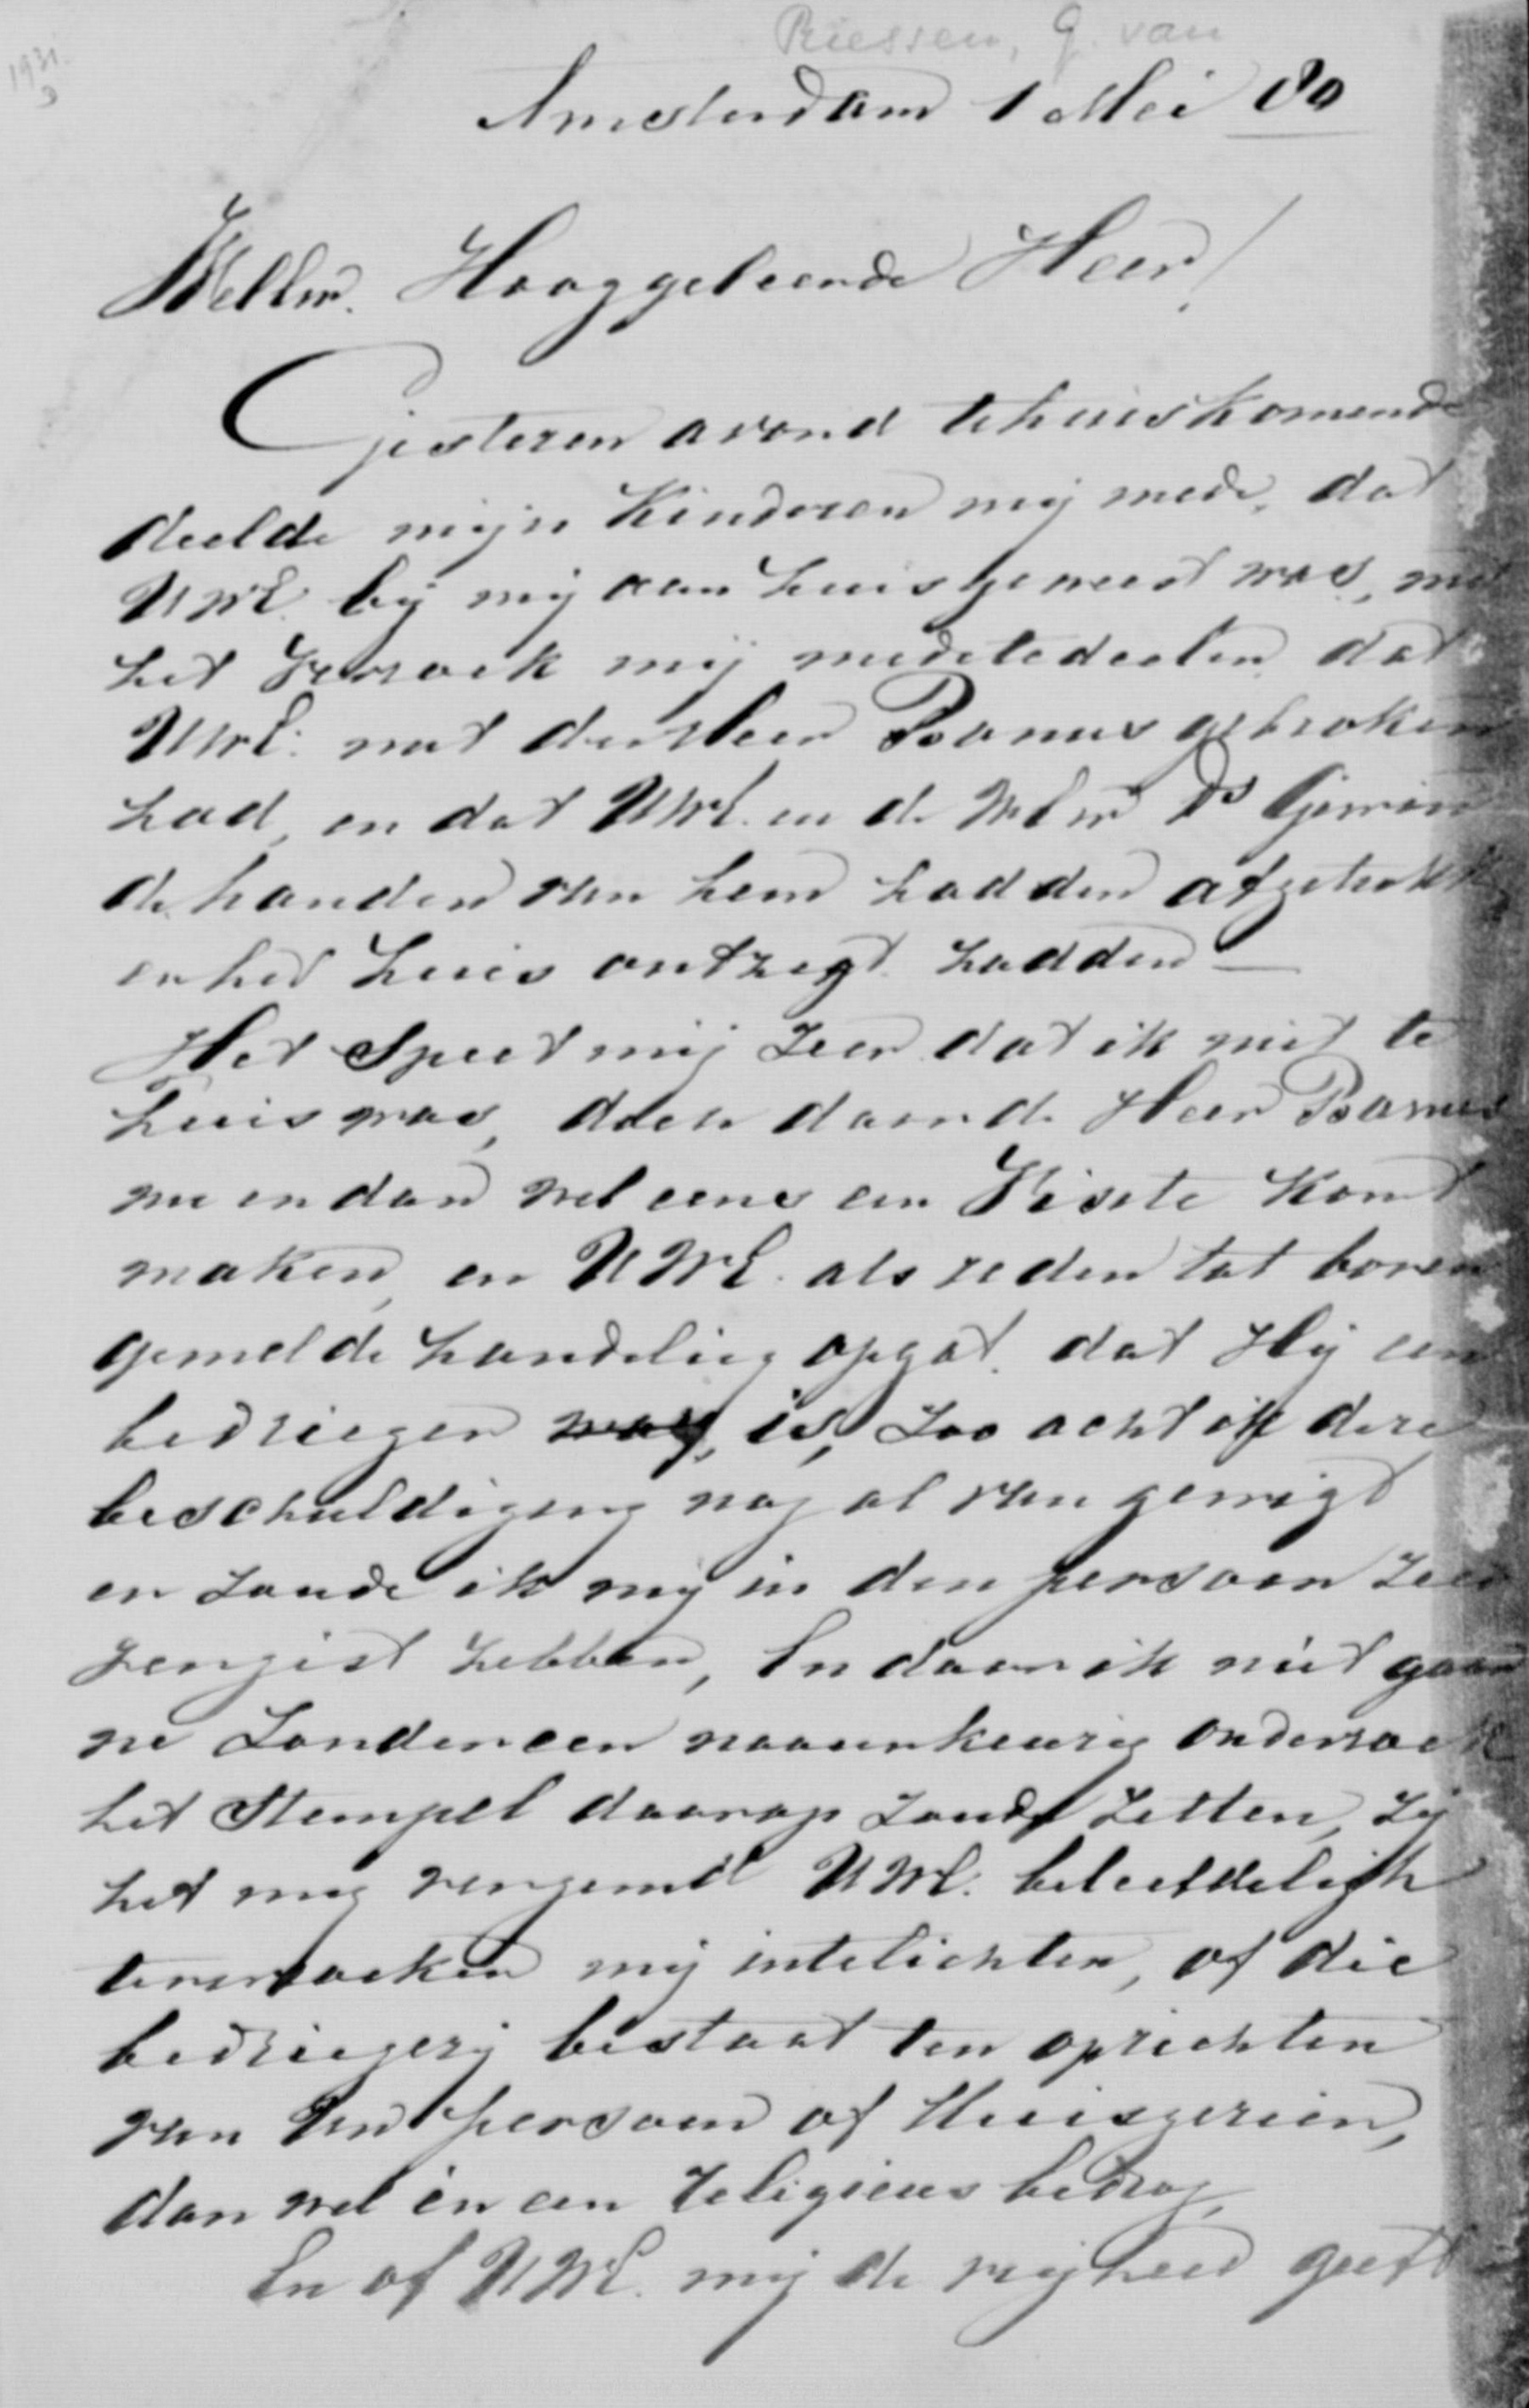 Riessen, G. van
1931.
3
Amsterdam 1 Mei 80
WelEerw. Hooggeleerde Heer!
Gisteren avond tehuiskomende
deelde mijn Kinderen mij mede, dat
UWE. bij mij aan huis geweest was, met
het verzoek mij medetedeelen dat
UWE. met den Heer Bonnus gebroken
had, en dat UWE. en de WEerw Ds
de handen van hem hadden afgetrokk
en het huis ontzegt hadden —
Het Speet mij Zeer dat ik niet te
huis was, doch daar de Heer Bonnus
nu en dan wel eens een Visite komt
maken, en UWE. als reden tot boven
gemelde handeling opgaf dat Hij een
bedrieger was, is, Zoo acht ik deze
beschuldiging nog al van gewigt
en Zoude ik mij in den persoon Zeer
vergist hebben, En daar ik niet gaar
ne Zonder een naauwkeurig onderzoek
het Stempel daarop Zoude Zetten, Zij
het mij vergund UWE. beleefdelijk
te verzoeken mij intelichten, of die
bedriegerij bestaat ten opzichten
van Zijn persoon of Huisgezin,
dan wel in een Religieus bedrog,
En of UWE. mij de vrijheid geeft